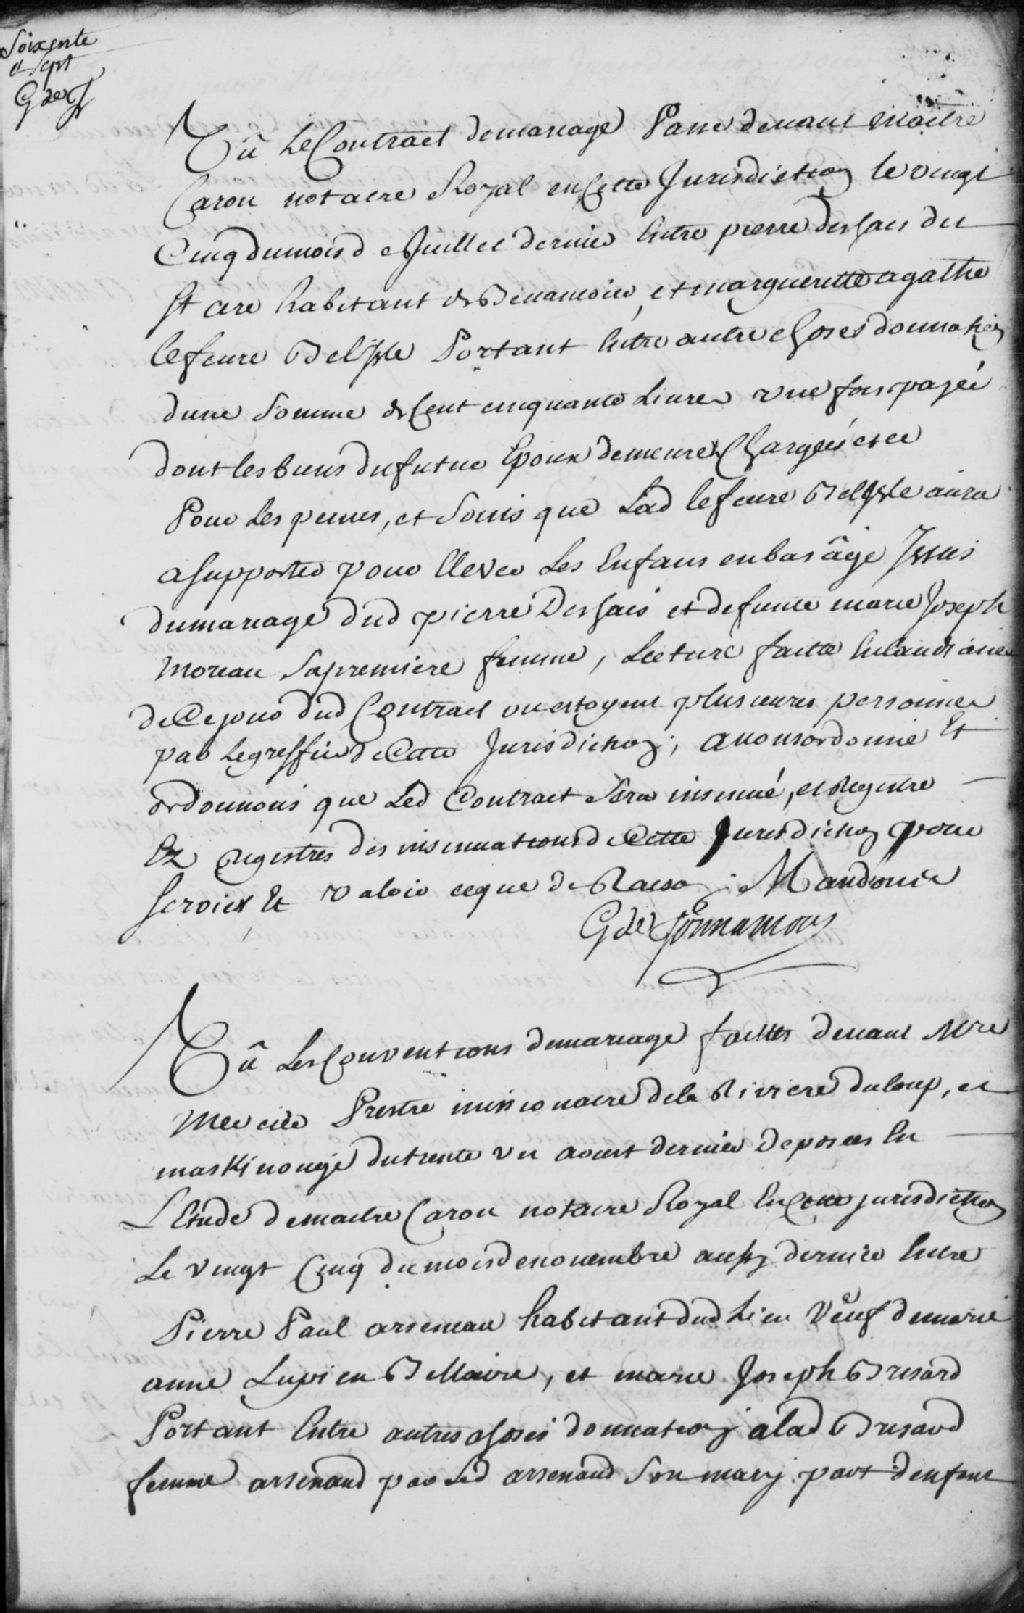 Soixente
et Sept
G de T
Vû Le Contract de mariage Passé devant maitre
Caron notaire Royal en Cette Jurisdiction le vingt
Cinq du mois de Juillet dernier Entre pierre dessais dit
St cire habitant de et margueritte agathe
lefevre Belisle Portant Entre autre choses donnation
dune Somme de Cent cinquante Livres une fois payée
dont les biens du futur Epoux demeure Chargés et ce
Pour Les peines, et Soins que Lad lefevre Belisle aura
a supporter pour Elever Les Enfans en bas âge Issus
du mariage dud pierre Dessais et defunte marie Joseph
moreau Sa premiere femme, Lecture faitte En l'audiance
de Ce jour dud Contract ou estoyent plusieures personnes
par Le greffier de Cette Jurisdiction; avons ordonné Et
ordonnons que Led Contract Sera insinué, et Registré
Ez Registres des insinuations de Cette Jurisdiction pour
Servir Et Valoir ce que de Raison; Mandons &
G de Tonnancour
Vû Les Conventions de mariage faittes devant Mre
Prestre missionaire de la Riviere du loup, et
maskinongé du trente un aoust dernier Deposées En
L'Etude de maitre Caron notaire Royal En Cette jurisdiction
Le vingt Cinq du mois de novembre aussy dernier Entre
Pierre Paul arseneau habitant dud Lieu Veuf de marie
anne Lupien Bellaire, et marie Joseph Brisard
Portant Entre autres choses donnation a lad Brisard
femme arsenaud par Led arsenaud Son mary part d'enfent